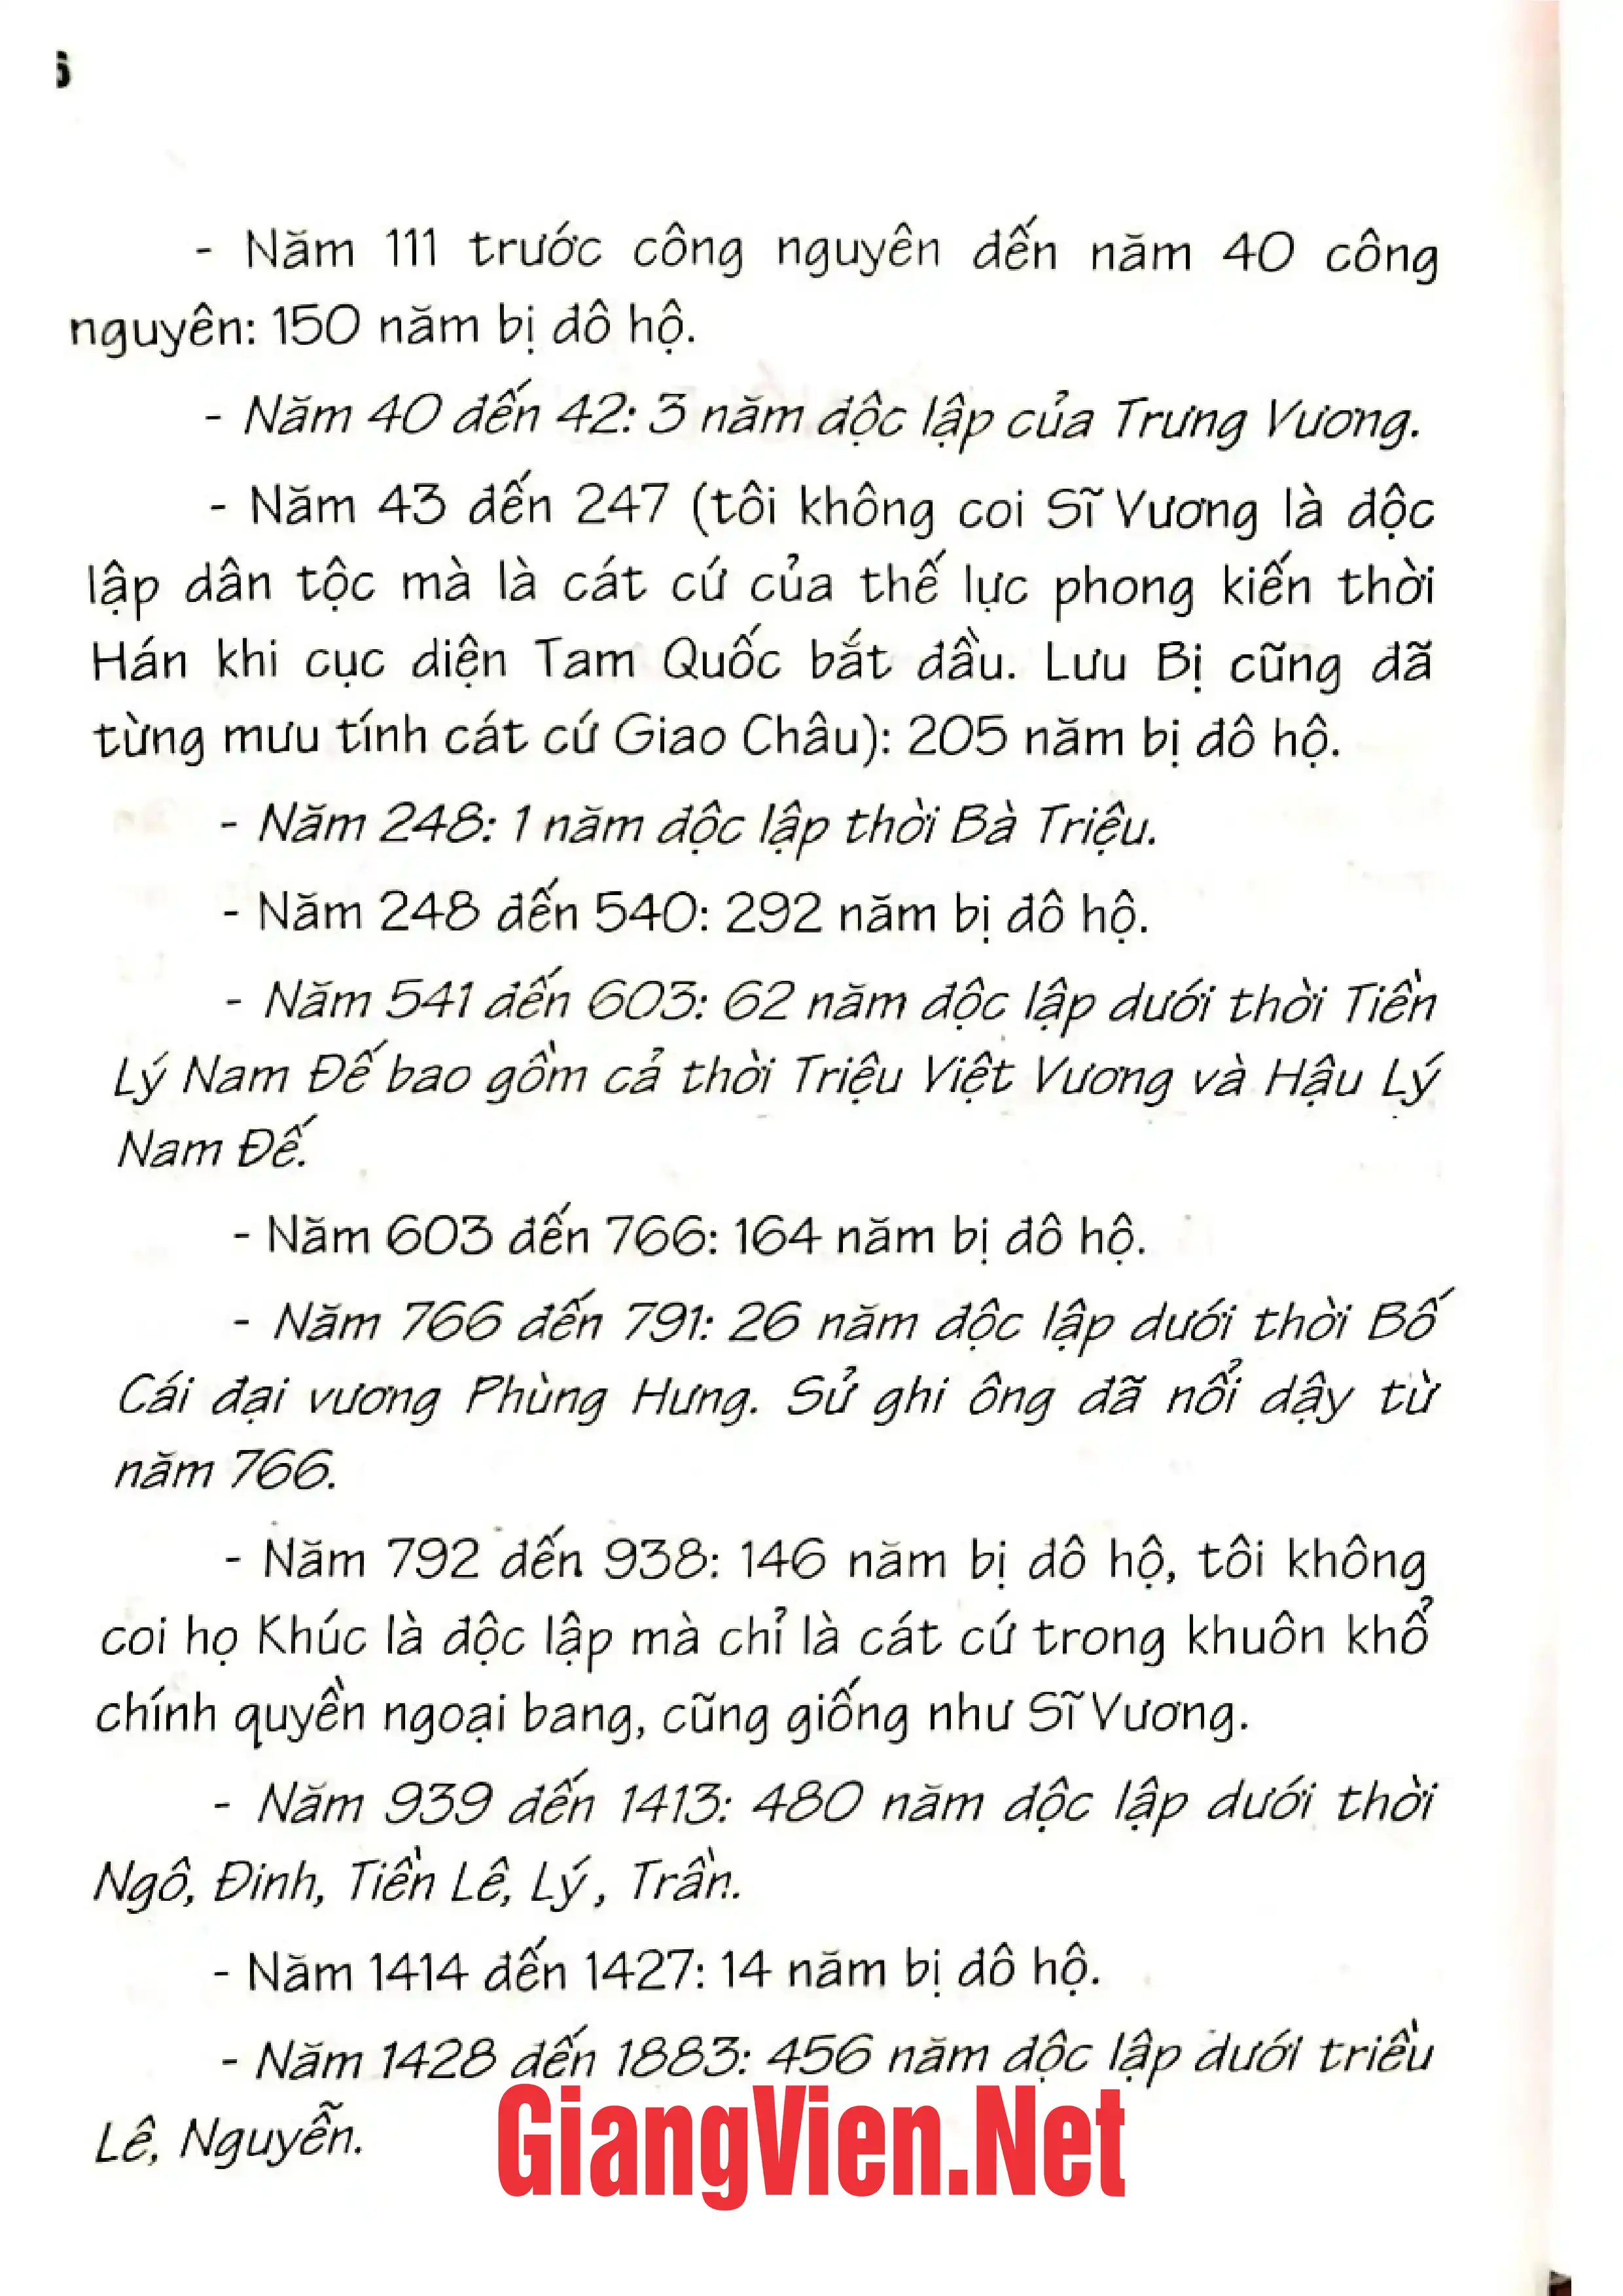 6
- Năm 111 trước công nguyên đến năm 40 công
nguyên: 150 năm bị đô hộ.
- Năm 40 đến 42: 3 năm độc lập của Trưng Vương.
- Năm 43 đến 247 (tôi không coi Sĩ Vương là độc
lập dân tộc mà là cát cứ của thế lực phong kiến thời
Hán khi cục diện Tam Quốc bắt đầu. Lưu Bị cũng đã
từng mưu tính cát cứ Giao Châu): 205 năm bị đô hộ.
- Năm 248: 1 năm độc lập thời Bà Triệu.
- Năm 248 đến 540: 292 năm bị đô hộ.
- Năm 541 đến 603: 62 năm độc lập dưới thời Tiền
Lý Nam Đế bao gồm cả thời Triệu Việt Vương và Hậu Lý
Nam Đế.
- Năm 603 đến 766: 164 năm bị đô hộ.
- Năm 766 đến 791: 26 năm độc lập dưới thời Bố
Cái đại vương Phùng Hưng. Sử ghi ông đã nổi dậy từ
năm 766.
- Năm 792 đến 938: 146 năm bị đô hộ, tôi không
coi họ Khúc là độc lập mà chỉ là cát cứ trong khuôn khổ
chính quyền ngoại bang, cũng giống như Sĩ Vương.
- Năm 939 đến 1413: 480 năm độc lập dưới thời
Ngô, Đinh, Tiền Lê, Lý, Trần.
- Năm 1414 đến 1427: 14 năm bị đô hộ.
- Năm 1428 đến 1883: 456 năm độc lập dưới triều
Lê, Nguyễn.
GiangVien.Net